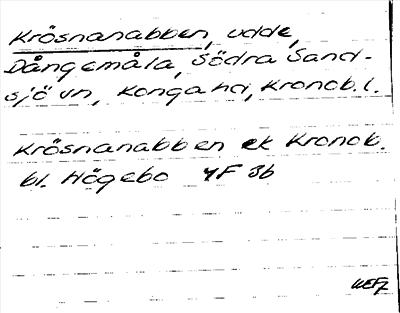 Krösnanabben, udde,
Dångemåla, Södra Sand-
sjö sn, Konga hd, Kronob. l.
Krösnanabben ek Kronob.
bl. Högebo 4F 3b